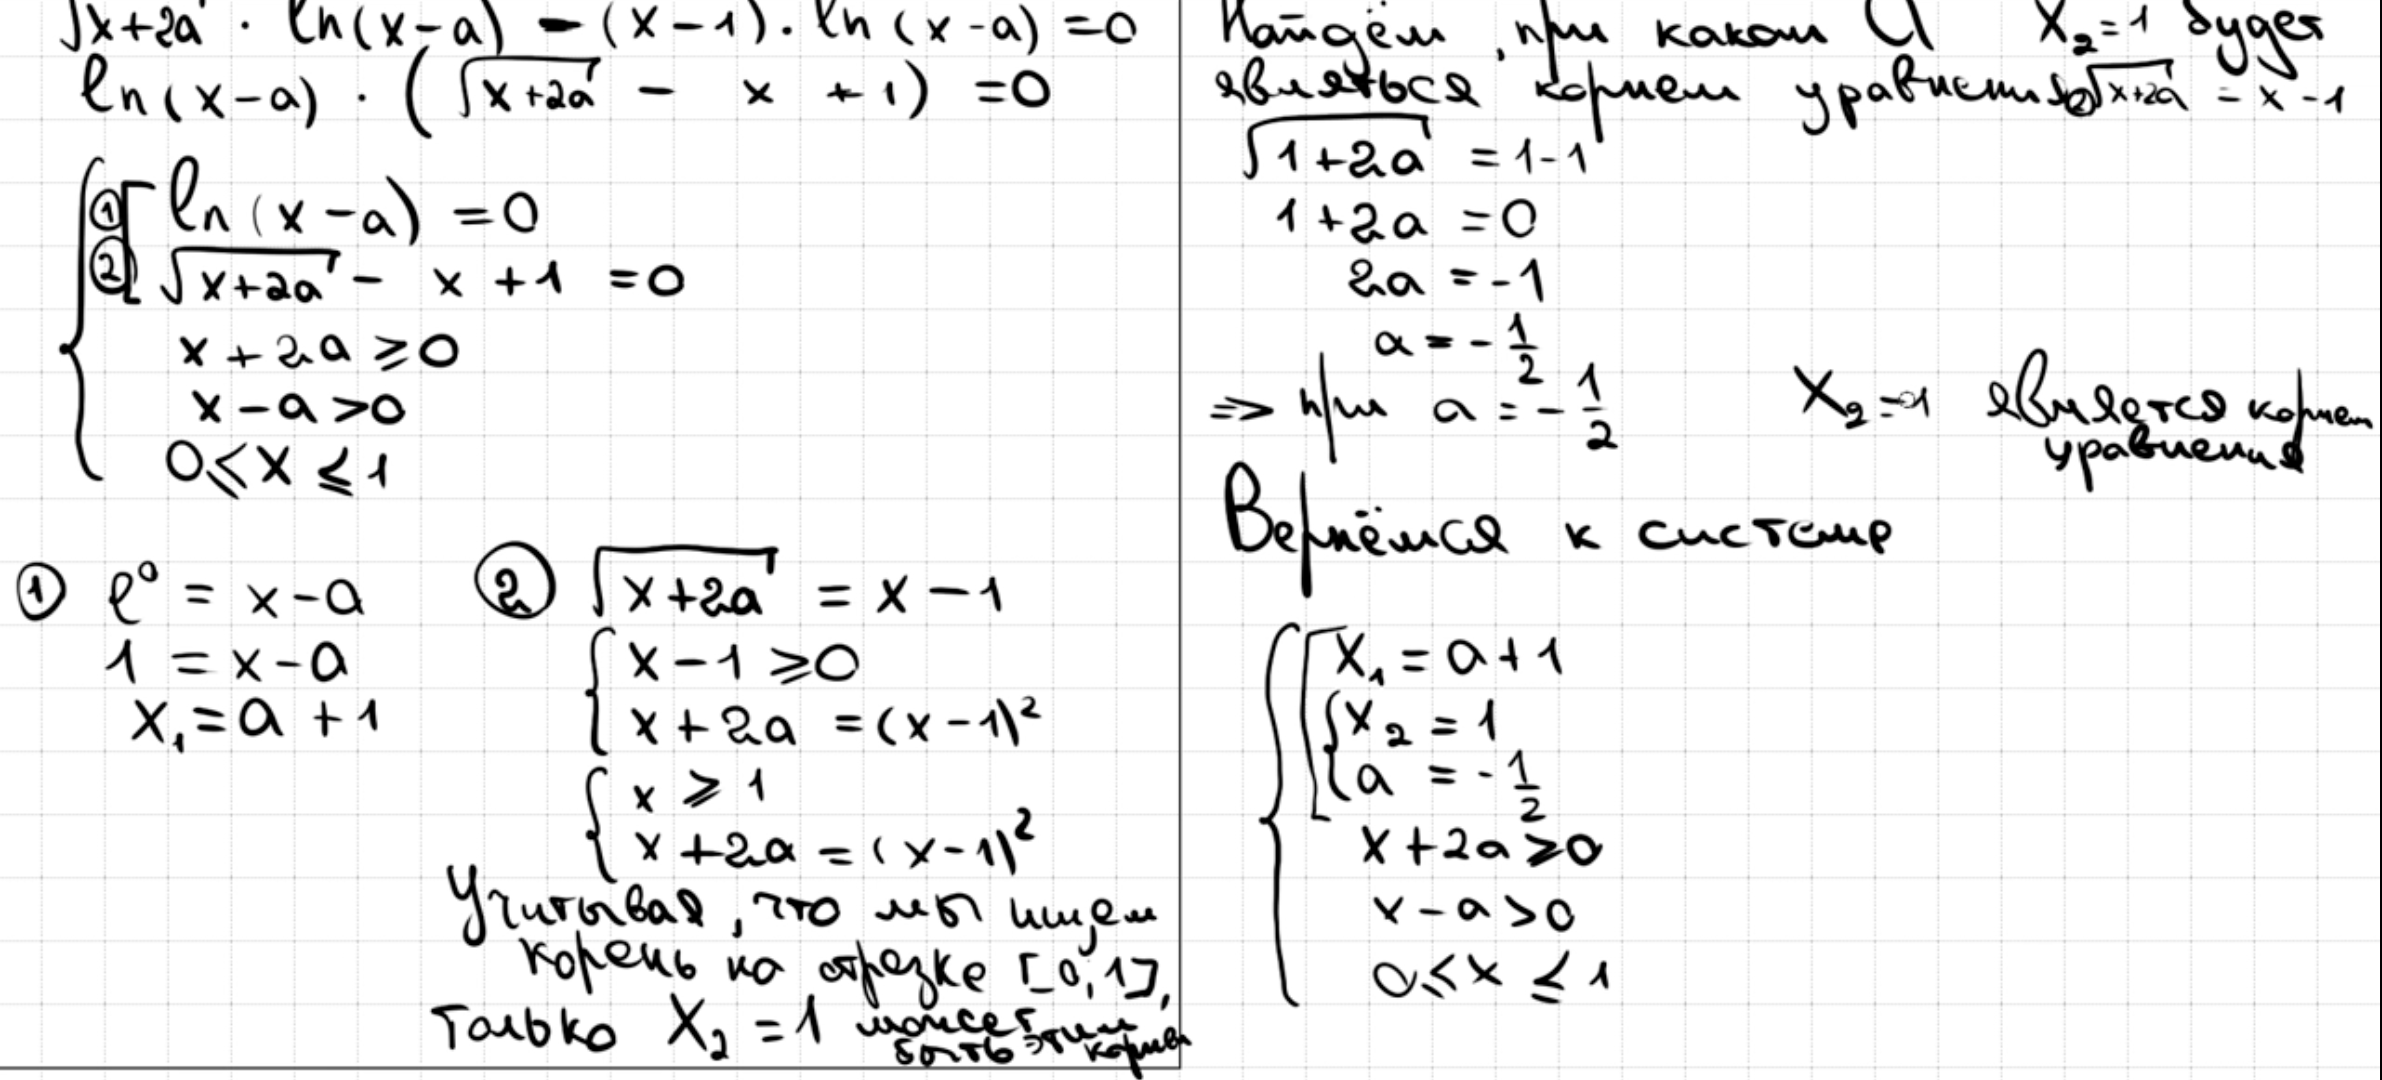 √x+2a · ln(x-a) - (x-1) · ln(x-a) =0
ln(x-a) · (√x+2a - x +1) =0
① ln(x-a) =0
② √x+2a - x +1 =0
x+2a ⩾0
x-a>0
0⩽x⩽1
① e⁰ = x-a
1 = x-a
x₁=a+1
② √x+2a = x-1
x-1 ⩾0
x+2a =(x-1)²
x ⩾ 1
x+2a =(x-1)²
Учитывая, что мы ищем
корень на отрезке [0;1],
только x₂=1 может
быть этим корнем
Найдём, при каком a x₂=1 будет
являться корнем уравнения √x+2a = x-1
√1+2a =1-1
1+2a =0
2a =-1
a=-1/2
=> при a=-1/2 x₂=1 является корнем
уравнения
Вернёмся к системе
x₁=a+1
x₂=1
a=-1/2
x+2a⩾0
x-a>0
0⩽x⩽1